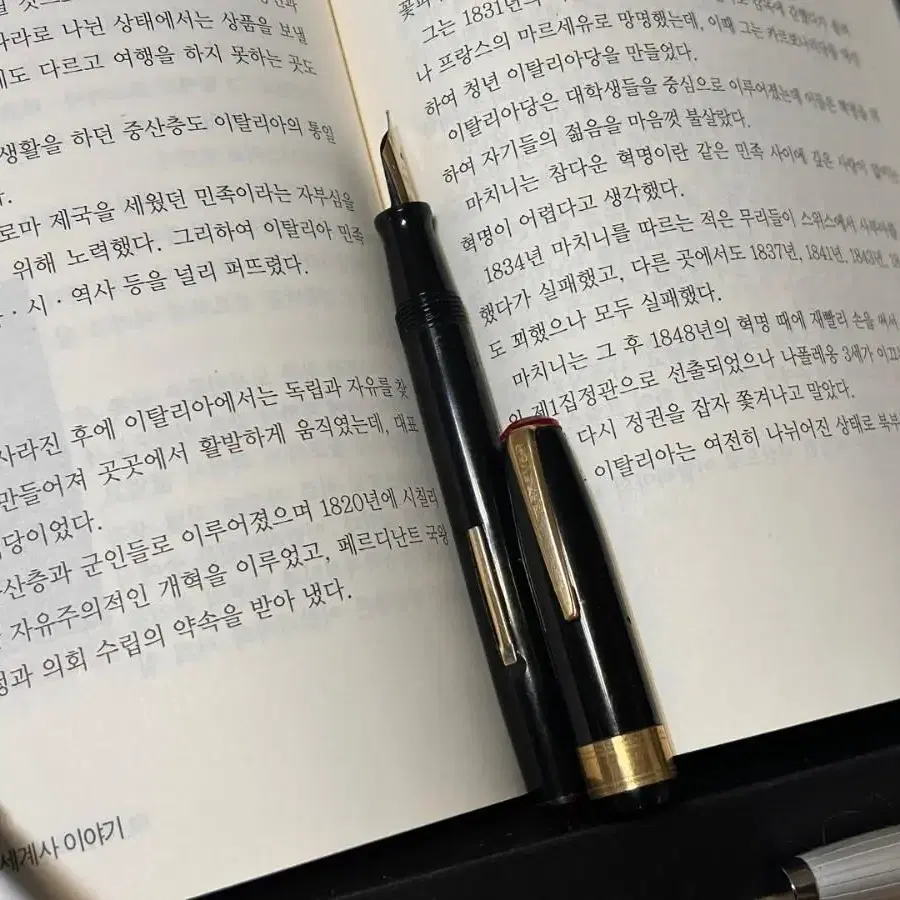 나라로 나뉜 상태에서는 상품을 보낼
도 다르고 여행을 하지 못하는 곳도
생활을 하던 중산층도 이탈리아의 통일
로마 제국을 세웠던 민족이라는 자부심을
위해 노력했다. 그리하여 이탈리아 민족
· 시 · 역사 등을 널리 퍼뜨렸다.
사라진 후에 이탈리아에서는 독립과 자유를 찾
만들어져 곳곳에서 활발하게 움직였는데, 대표
당이었다.
산층과 군인들로 이루어졌으며 1820년에 시칠리
자유주의적인 개혁을 이루었고, 페르디난트 국왕
과 의회 수립의 약속을 받아 냈다.
세계사 이야기
그는 1831년
나 프랑스의 마르세유로 망명했는데, 이때 그는 카르보나리당을
하여 청년 이탈리아당을 만들었다.
이탈리아당은 대학생들을 중심으로 이루어졌는데 이들은 혁명을
하여 자기들의 젊음을 마음껏 불살랐다.
마치니는 참다운 혁명이란 같은 민족 사이에 깊은 사랑이 없이는
혁명이 어렵다고 생각했다.
1834년 마치니를 따르는 적은 무리들이 스위스에서
했다가 실패했고, 다른 곳에서도 1837년, 1841년, 1843년,
도 꾀했으나 모두 실패했다.
마치니는 그 후 1848년의 혁명 때에 재빨리 손을 써서
제1집정관으로 선출되었으나 나폴레옹 3세가
다시 정권을 잡자 쫓겨나고 말았다.
이탈리아는 여전히 나뉘어진 상태로 북부